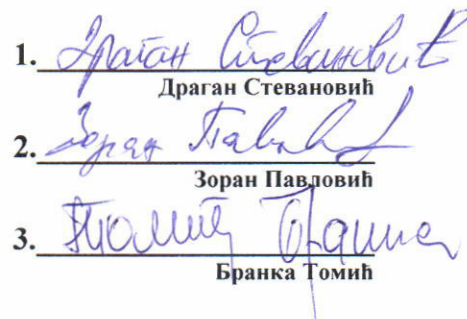 1. Драган Стевановић
Драган Стевановић
2. Зоран Павловић
Зоран Павловић
3. Томић Бранка
Бранка Томић